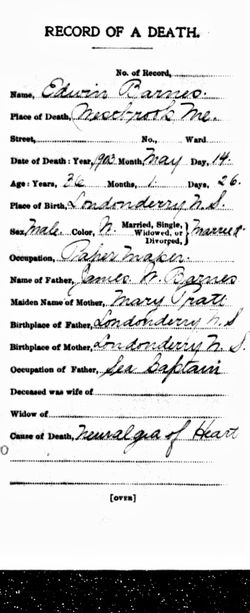 RECORD OF A DEATH.
No. of Record,
Name, Edwin Barnes.
Place of Death, Westbrook Me.
Street, No., Ward
Date of Death: Year, 1903 Month, May Day, 14.
Age: Years, 36 Months, 1 Days, 26.
Place of Birth, Londonderry N.S.
Sex, Male. Color, W. Married, Single, Widowed, or Divorced, } Married
Occupation, Paper Maker.
Name of Father, James W. Barnes
Maiden Name of Mother, Mary Pratt
Birthplace of Father, Londonderry N S
Birthplace of Mother, Londonderry N S.
Occupation of Father, Sea Captain
Deceased was wife of
Widow of
Cause of Death, Neuralgia of Heart
[OVER]